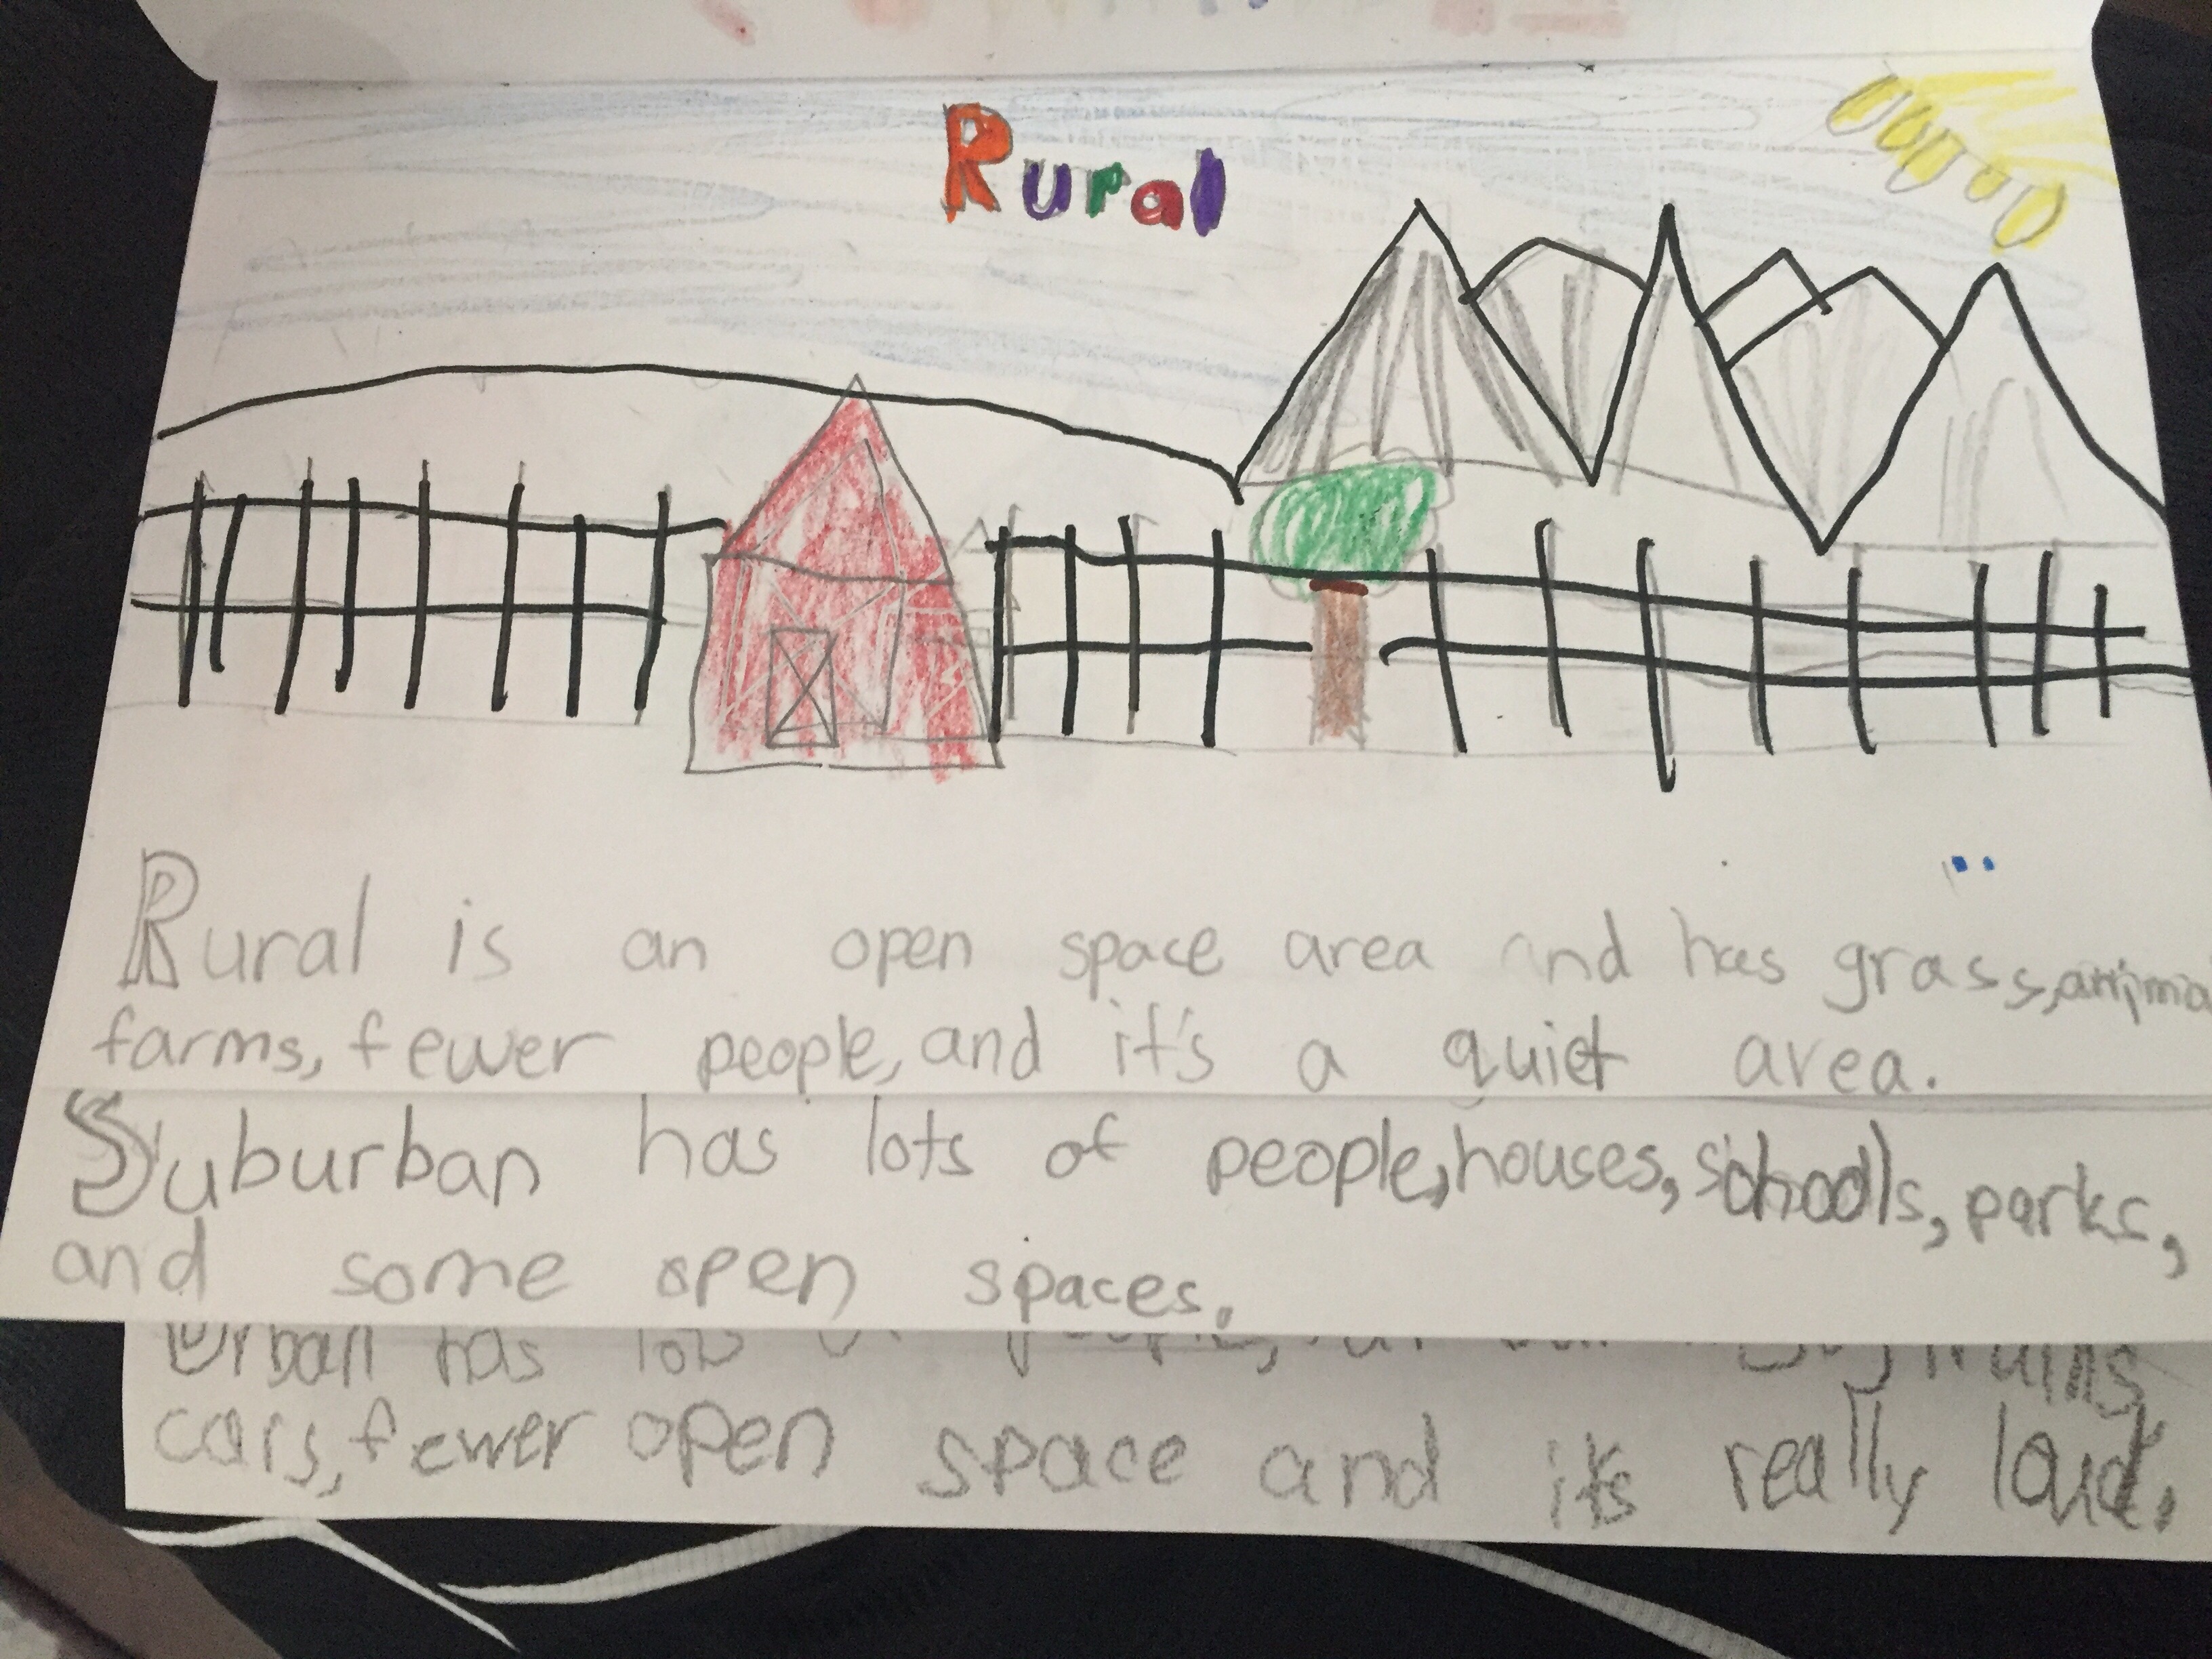 Rural
Rural is an open space area and has grass, anima
farms, fewer people, and it's a quiet area.
Suburban has lots of people, houses, schools, parks,
and some open spaces.
Urban has lots
cars, fewer open space and it's really loud.